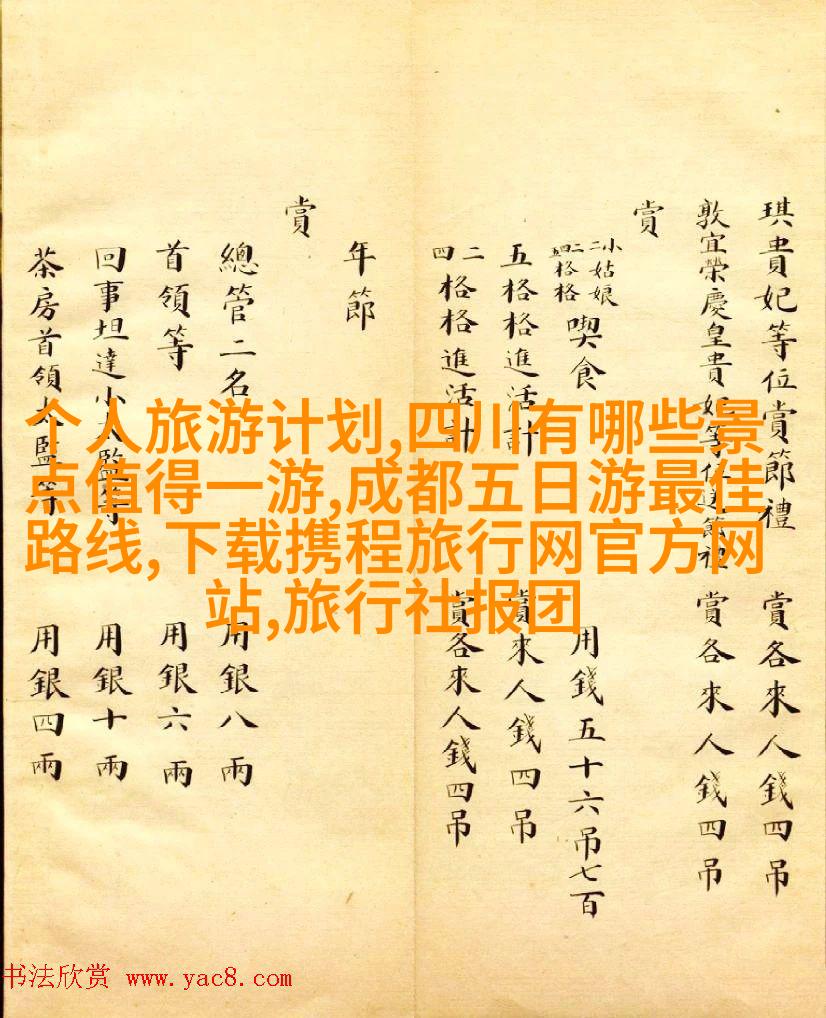 琪貴妃等位賞節禮 賞各來人錢四吊
敦宜榮慶皇貴妃等位送節禮 賞各來人錢四吊
賞
小姑娘 格格 喫食 用錢五十六吊七百
五格格進活計 賞來人錢四吊
二四格格進活計 賞各來人錢四吊
年節
賞
總管二名 用銀八兩
首領等 用銀六兩
回事坦達小太監等 用銀十兩
茶房首領太監等 用銀四兩
个人旅游计划,四川有哪些景
点值得一游,成都五日游最佳
路线,下载携程旅行网官方网
站,旅行社报团
书法欣赏 www.yac8.com